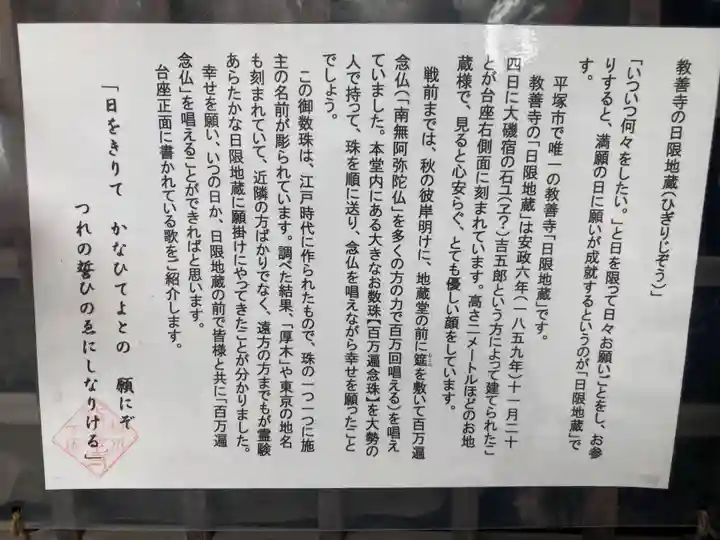 教善寺の日限地蔵(ひぎりじぞう)」
「いついつ何々をしたい。」と日を限って日々お願いごとをし、お参
りすると、満願の日に願いが成就するというのが「日限地蔵」で
す。
平塚市で唯一の教善寺「日限地蔵」です。
教善寺の「日限地蔵」は安政六年(一八五九年)十一月二十
四日に大磯宿の石ユ(ヱ?)吉五郎という方によって建てられたこ
とが台座右側面に刻まれています。高さ二メートルほどのお地
蔵様で、見ると心安らぐ、とても優しい顔をしています。
戦前までは、秋の彼岸明けに、地蔵堂の前に筵を敷いて百万遍
念仏(「南無阿弥陀仏」を多くの方の力で百万回唱える)を唱え
ていました。本堂内にある大きなお数珠【百万遍念珠】を大勢の
人で持って、珠を順に送り、念仏を唱えながら幸せを願ったこと
でしょう。
この御数珠は、江戸時代に作られたもので、珠の一つ一つに施
主の名前が彫られています。調べた結果、「厚木」や東京の地名
も刻まれていて、近隣の方ばかりでなく、遠方の方までもが霊験
あらたかな日限地蔵に願掛けにやってきたことが分かりました。
幸せを願い、いつの日か、日限地蔵の前で皆様と共に「百万遍
念仏」を唱えることができればと思います。
台座正面に書かれている歌をご紹介します。
「日をきりて かなひてよとの 願にぞ
つれの誓ひのゑにしなりける」